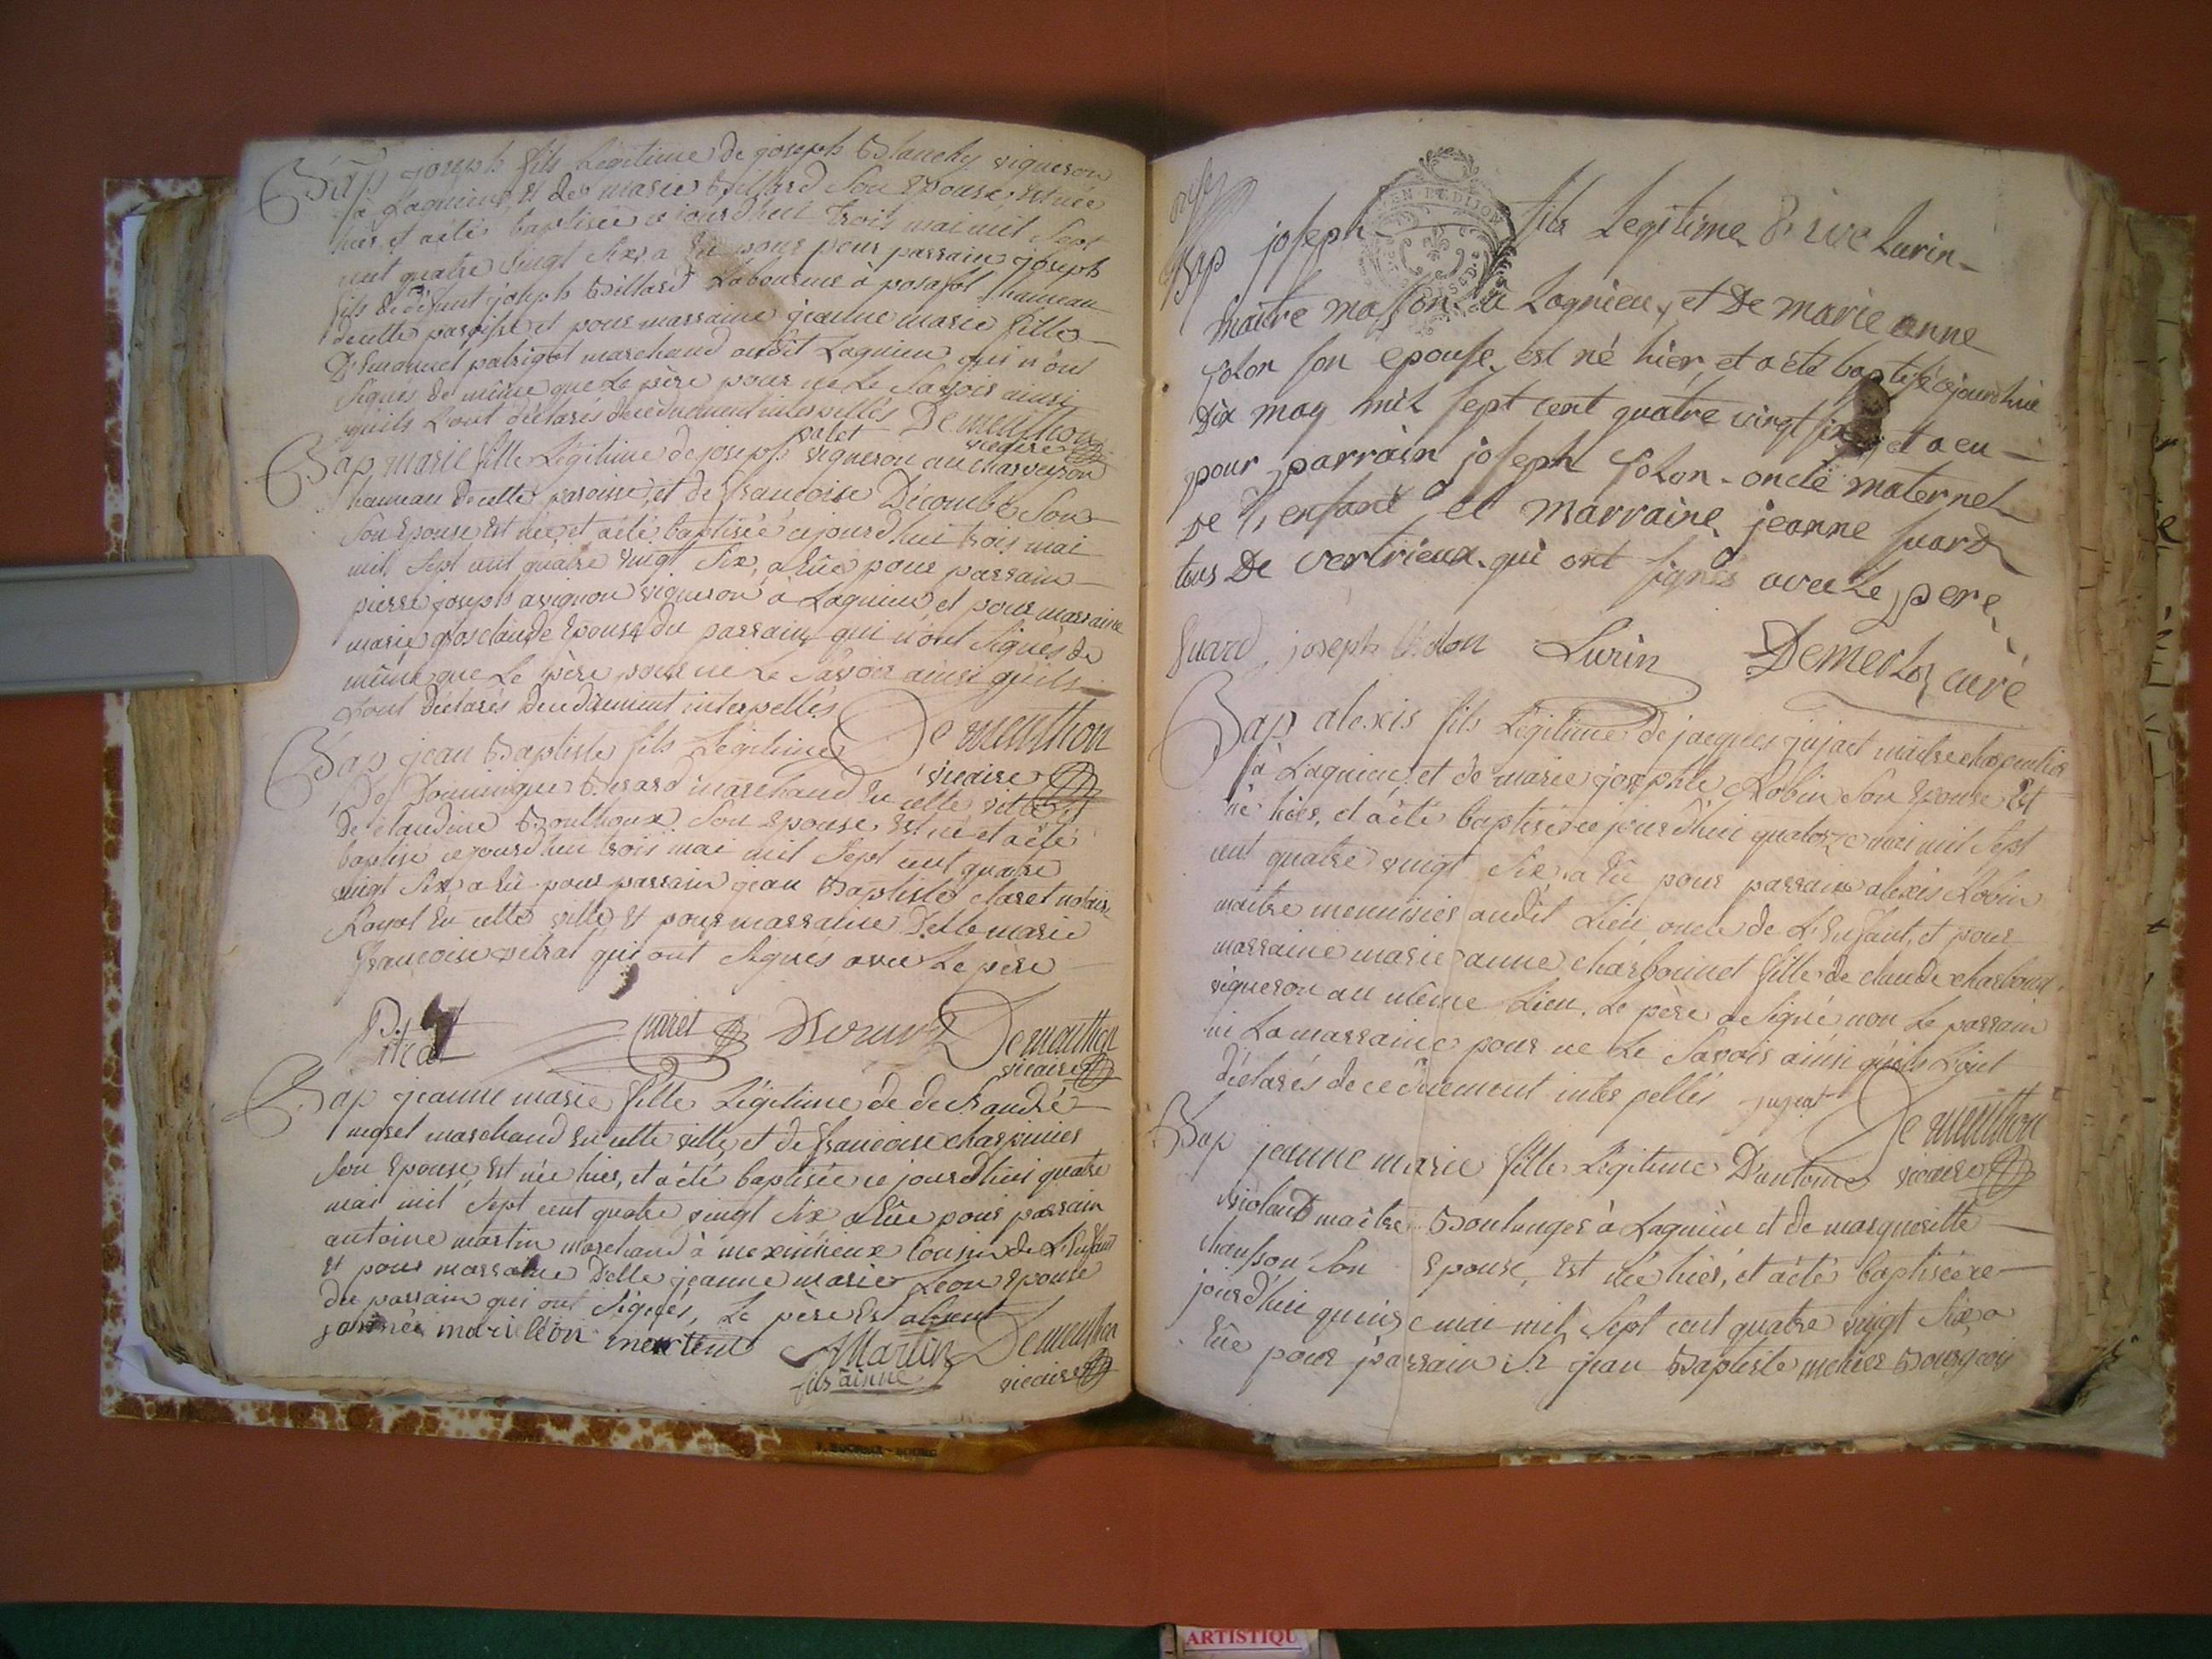 Bap joseph fils Légitime de joseph Blanchy vigneron
à Lagnieu, et de marie Billard son Epouse, est née
hier et a été baptisée ce jourd'hui trois mai mil sept
cent quatre vingt six, a Eu pour parrain joseph
fils de défunt joseph Billard Laboureur à posafol hameau
de cette paroisse et pour marraine jeanne marie fille
D'Emanuel patrigot marchand audit Lagnieu, qui n'ont
signés de même que le père pour ne le savoir ainsi
qu'ils L'ont déclarés de ce duement interpellés Dementhon
valet vicaire
Bap marie fille Légitime de joseph vigneron au charveyron
hameau de cette paroisse, et de françoise Décombe Son
Son Epouse, est née, et a été baptisée cejourd'hui trois mai
mil sept cent quatre vingt six, a Eûe pour parrain
pierre joseph avignon vigneron à Lagnieu, et pour marraine
marie grosclaude Epouse du parrain, qui n'ont signés de
même que le père pour ne le savoir ainsi qu'ils
L'ont déclarés de ce duement interpellés Dementhon
Bap jean Baptiste fils Légitime vicaire
De Dominique Berard marchand En cette ville et
De claudine Bonthoux son Epouse est né et a été
baptisé cejourd'hui trois mai mil sept cent quatre
vingt six a Eû pour parrain jean Baptiste claret notaire
Royal En cette ville et pour marraine Delle marie
françoise pitrat qui ont signés avec le père
Pitrat Claret Dementhon
vicaire
Bap jeanne marie fille Légitime de andré
negret marchand En cette ville, et de françoise charpinier
son Epouse, est née hier, et a été baptisée ce jourd'hui quatre
mai mil sept cent quatre vingt six a Eûe pour parrain
antoine martin marchand à meximieux cousin de L'Enfant
et pour marraine Delle jeanne marie Leon Epouse
du parrain qui ont signés, Le père Est absent
jannéi marie léon martin AMartin Dementhon
fils ainné vicaire
Bap joseph fils Legitime De Lurin
maitre masson de Lagnieu, et De marie anne
solon son epouse, est né hier, et a été baptisé cejourdhui
Dix may mil sept cent quatre vingt six, et a eu
pour parrain joseph solon oncle maternel
De l'enfant et marraine jeanne suard
tous De vertrieux qui ont signés avec Le pere
Suard joseph solon Lurin Demerloz curé
Bap alexis fils Légitime de jacques jujat maitre charpentier
à Lagnieu, et de marie josephte Robin son Epouse Est
né hier, et a été baptisé ce jourd'hui quatorze mai mil sept
cent quatre vingt six a Eû pour parrain alexis Robin
maitre menuisier audit Lieu oncle de L'Enfant, et pour
marraine marie anne charbonnet fille de claude charbonnet
vigneron au même Lieu. Le père a signé non le parrain
ni La marraine pour ne Le Savoir ainsi qu'ils L'ont
déclarés de ce duement interpellés jujat Dementhon
Bap jeanne marie fille Légitime D'antoine vicaire
violand maitre Boulanger à Lagnieu et de margueritte
chanson son Epouse, est née hier, et a été baptisée ce
jourd'hui quinze mai mil sept cent quatre vingt six, a
Eûe pour parrain Sr jean Baptiste Bourgeois
ARTISTIQU